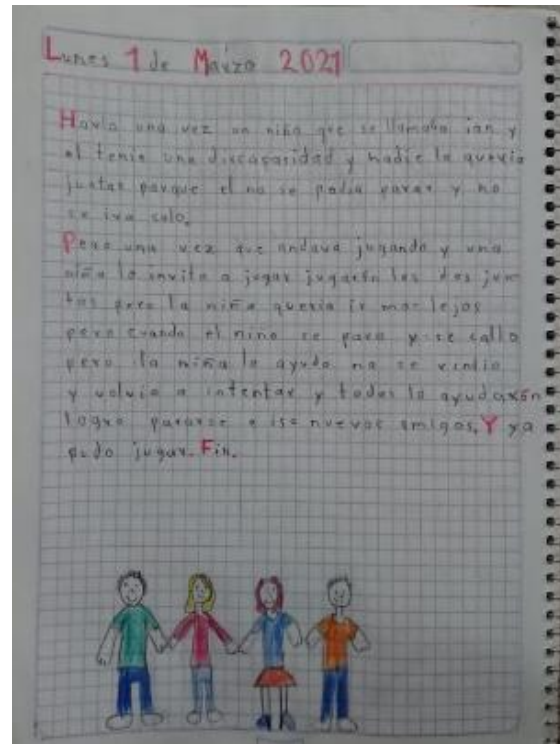 Lunes 1 de Marzo 2021
Havia una vez un niño que se llamaba ian y
el tenia una discapasidad y nadie lo queria
juntar porque el no se podia parar y no
se iva solo.
Pero una vez que andava jugando y una
niña lo invito a jugar jugarón los dos jun
tos pero la niña queria ir mas lejos
pero cuando el niño se paro y se callo
pero la niña lo ayudo no se rindio
y volvio a intentar y todos lo ayudarón
logro pararse e iso nuevos amigos. Y ya
pudo jugar. Fin.